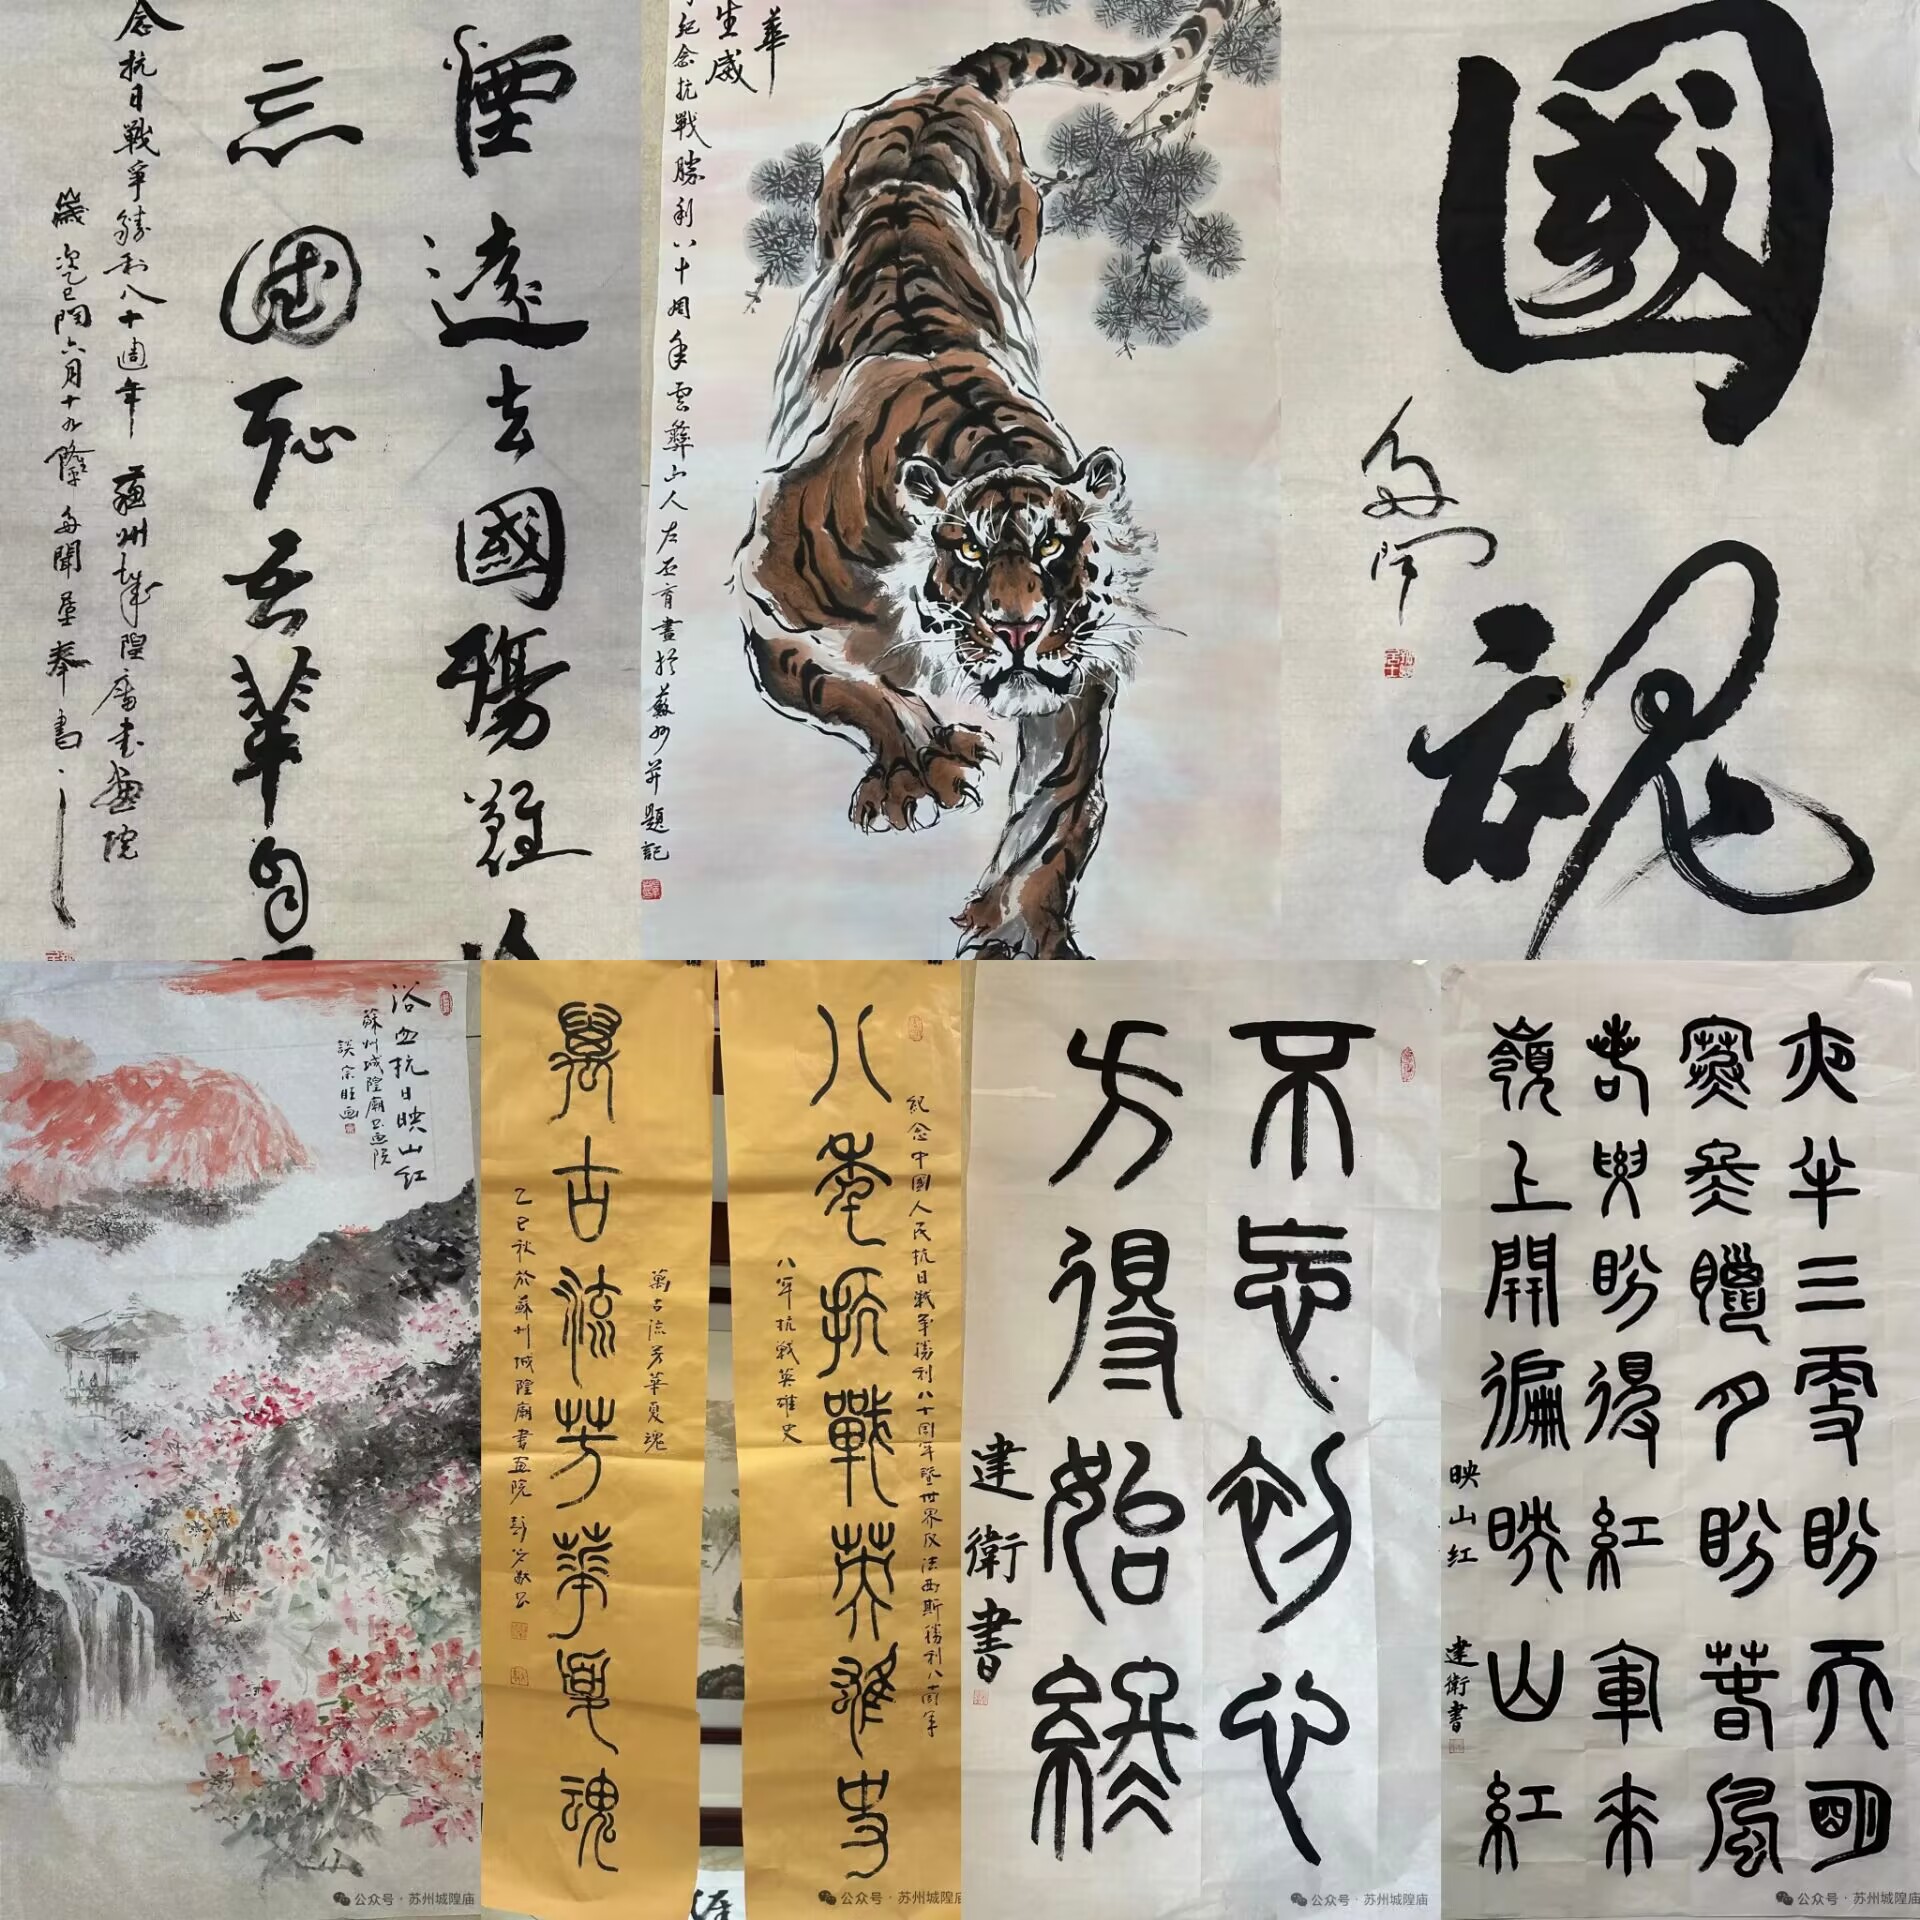 煙遠去國殤難
忘國恥吾輩自
念抗日戰爭勝利八十週年 蘇州城隍廟書畫院
歲次乙巳閏六月十九 多聞 奉書
華
生威
紀念抗戰勝利八十周年雲彝山人左丕育畫於蘇州并題記
國魂
多聞
浴血抗日映山红
蘇州城隍廟书画院
宗旺画
公众号·苏州城隍庙
紀念中國人民抗日戰爭勝利八十周年暨世界反法西斯勝利八十周年
八年抗戰英雄史
八年抗戰英雄史
萬古流芳華夏魂
萬古流芳華夏魂
乙巳秋於蘇州城隍廟書画院
公众号·苏州城隍庙
不忘初心
方得始終
建衛書
公众号·苏州城隍庙
夜半三更盼天明
寒冬臘月盼春風
若要盼得紅軍來
嶺上開遍映山紅
映山红
建衛書
公众号·苏州城隍庙